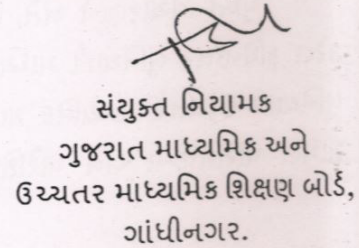 સંયુક્ત નિયામક
ગુજરાત માધ્યમિક અને
ઉચ્ચતર માધ્યમિક શિક્ષણ બોર્ડ,
ગાંધીનગર.